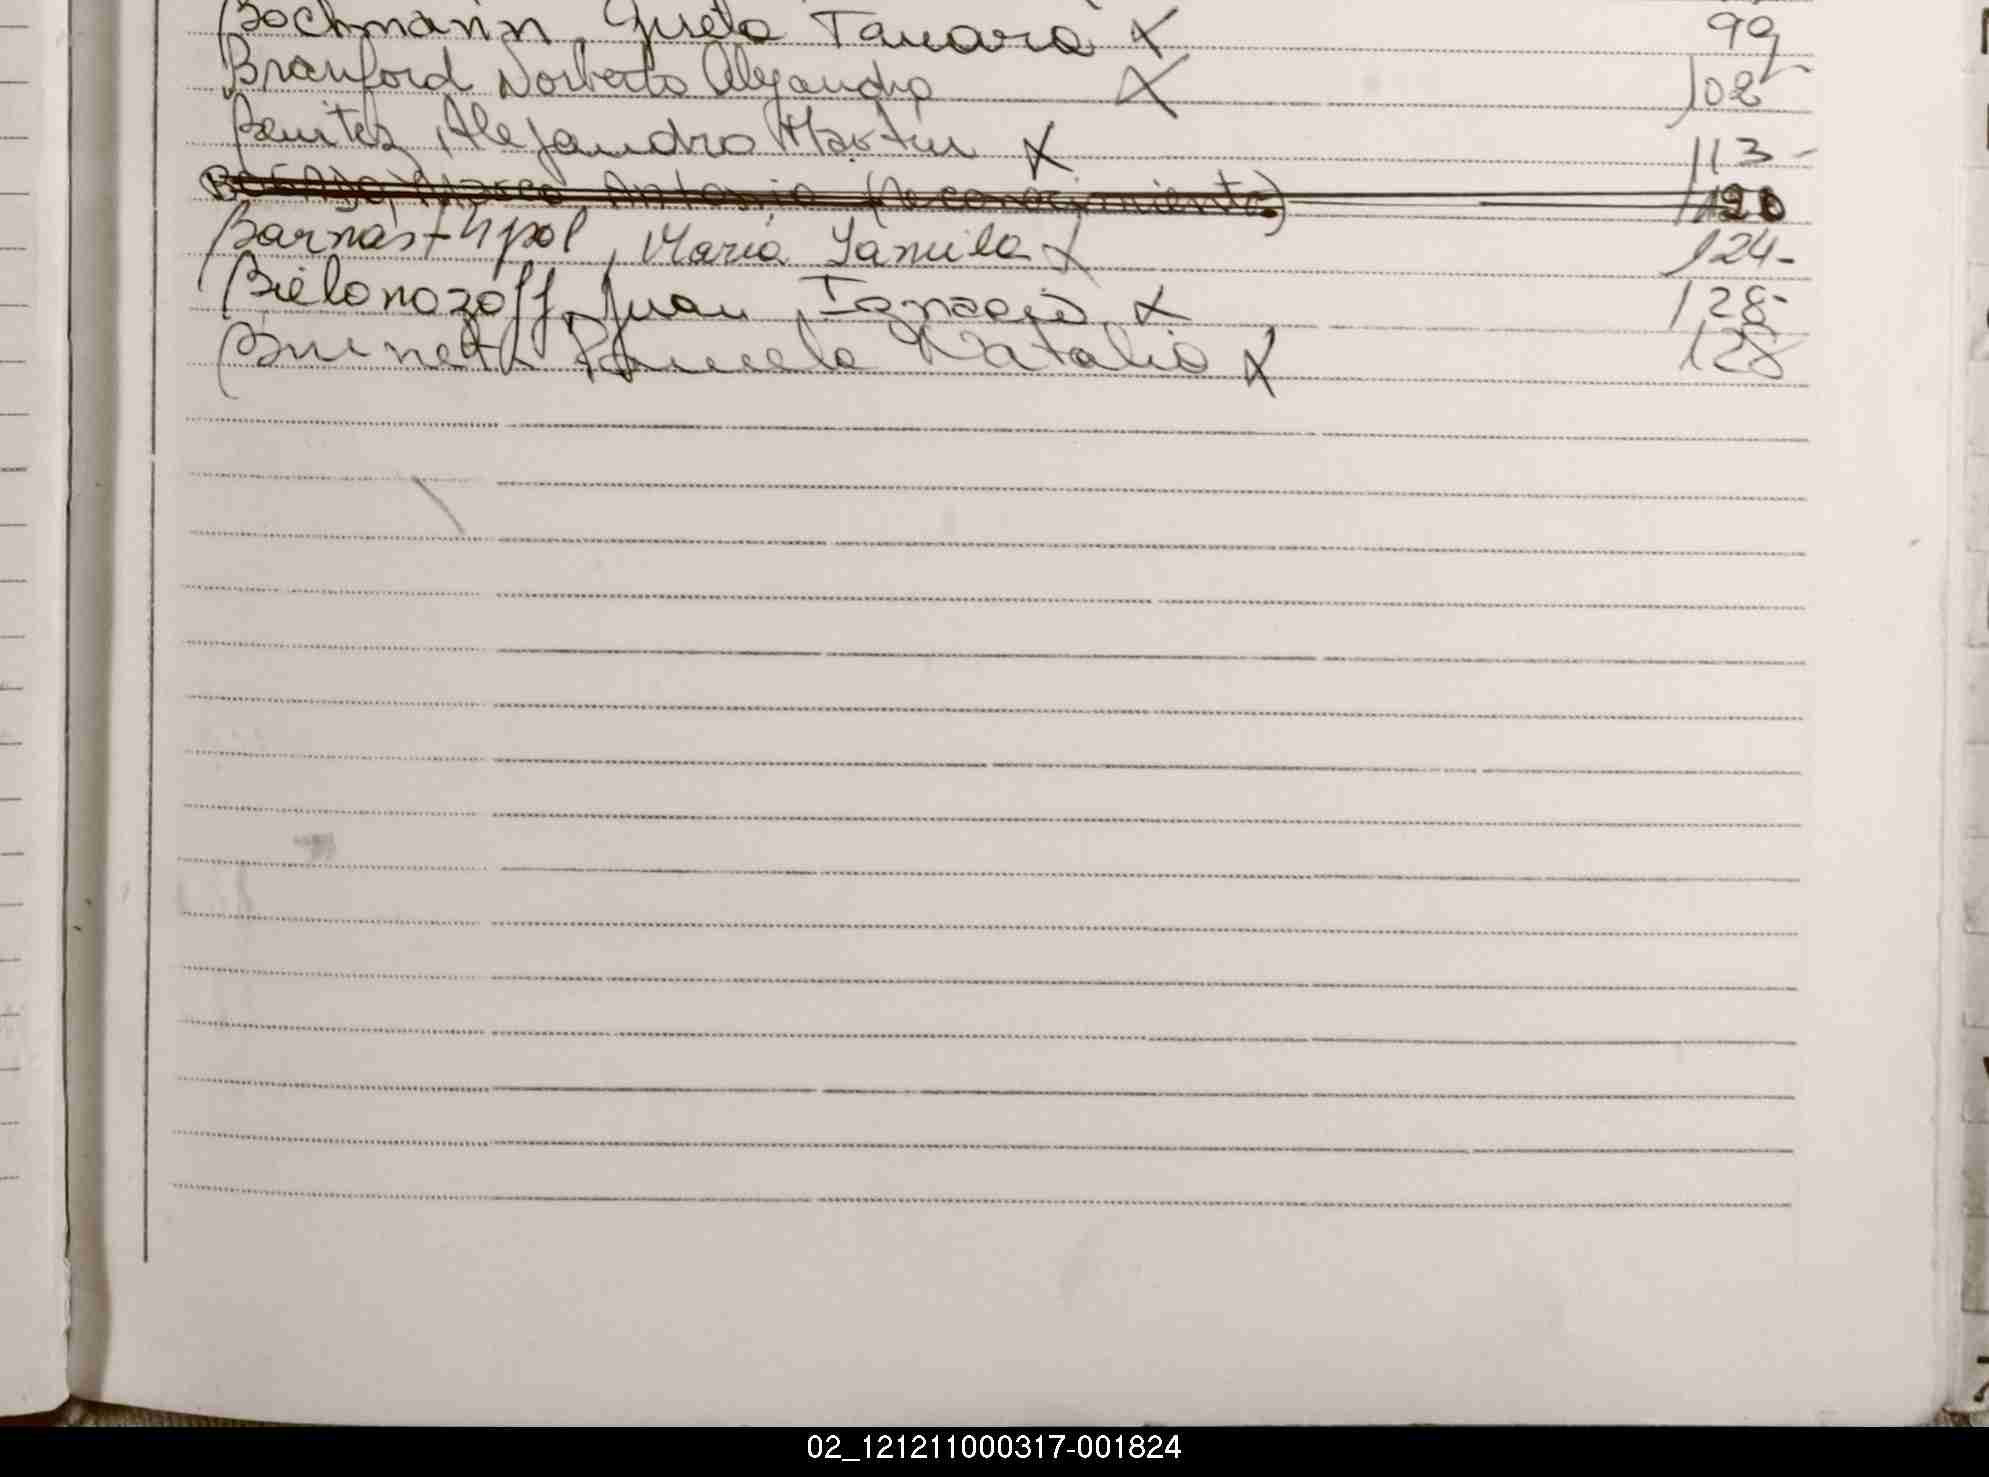 Bochmann, Greta Tamara X 99
Branford Norberto Alejandro X 108
Benitez, Alejandro Martin X 113-
Marco Antonio (Reconocimiento) 120
María Yamila X 124-
Bielonozoff, Juan Ignacio X 128-
Natalia X 128
02_121211000317-001824